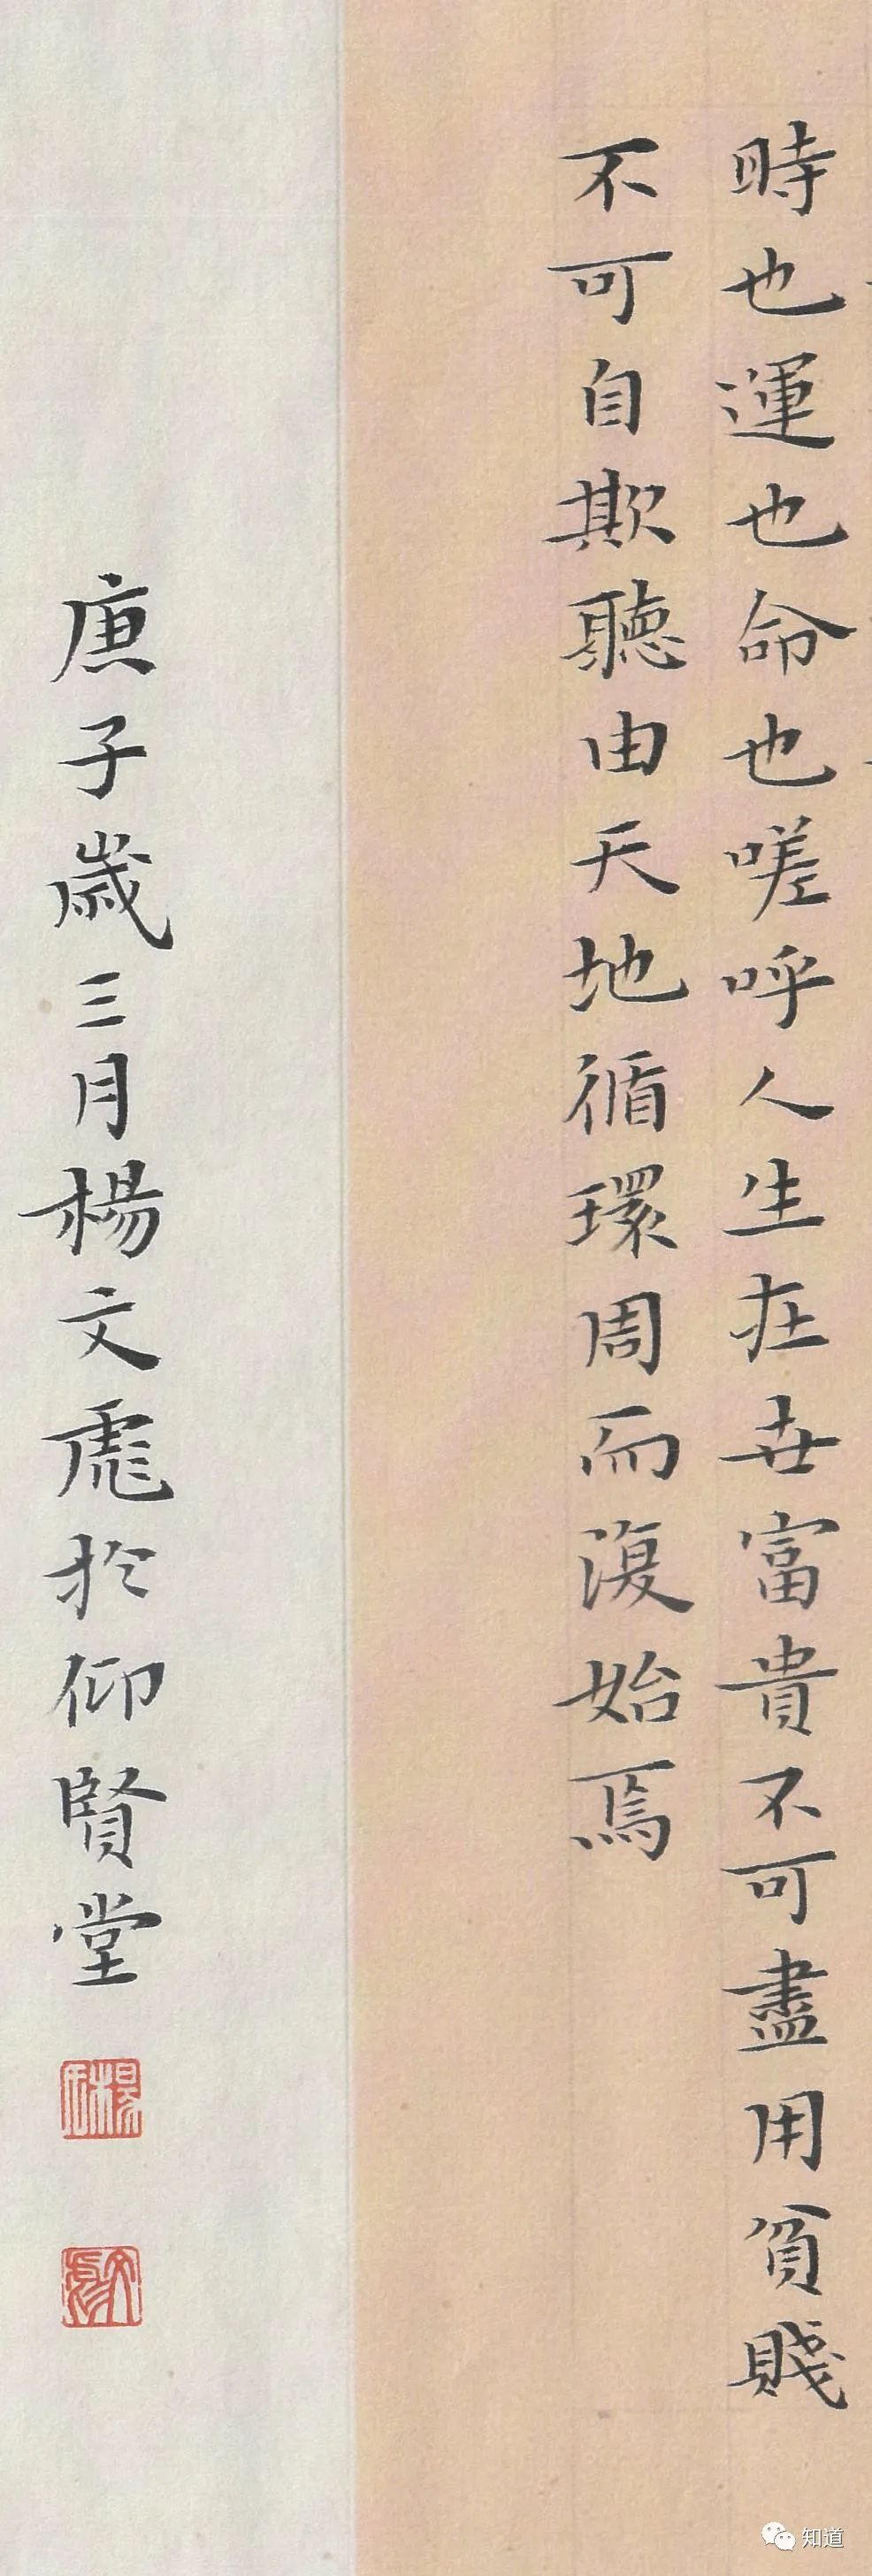 時也運也命也嗟呼人生在世富貴不可盡用貧賤
不可自欺聽由天地循環周而復始焉
庚子歲三月楊文彪於仰賢堂
知道